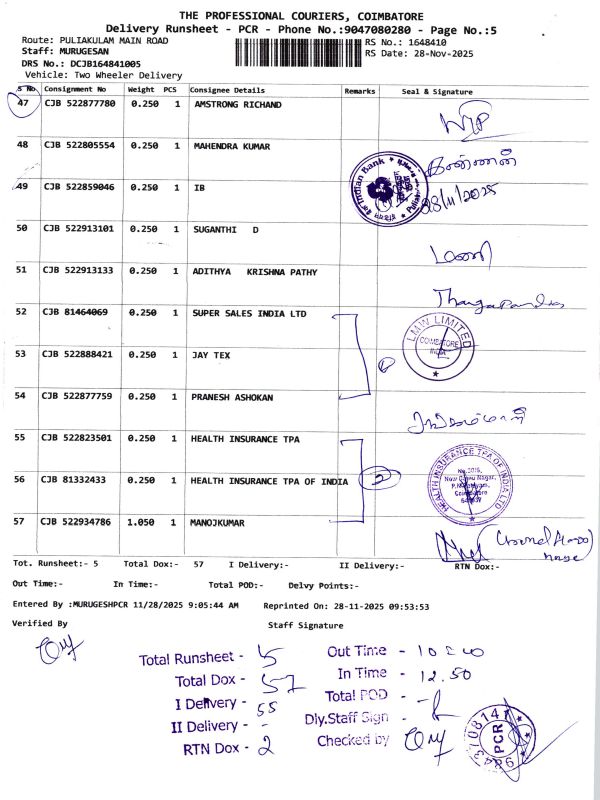 THE PROFESSIONAL COURIERS, COIMBATORE
Delivery Runsheet - PCR - Phone No.:9047080280 - Page No.:5
Route: PULIAKULAM MAIN ROAD
RS No.: 1648410
Staff: MURUGESAN
RS Date: 28-Nov-2025
DRS No.: DCJB164841005
Vehicle: Two Wheeler Delivery
S No Consignment No Weight PCS Consignee Details Remarks Seal & Signature
47 CJB 522877780 0.250 1 AMSTRONG RICHAND
48 CJB 522805554 0.250 1 MAHENDRA KUMAR
கண்ணன்
Indian Bank
49 CJB 522859046 0.250 1 IB
28/11/2025
50 CJB 522913101 0.250 1 SUGANTHI D
51 CJB 522913133 0.250 1 ADITHYA KRISHNA PATHY
52 CJB 81464069 0.250 1 SUPER SALES INDIA LTD
LMW LIMITED
COIMBATORE
INDIA
53 CJB 522888421 0.250 1 JAY TEX
54 CJB 522877759 0.250 1 PRANESH ASHOKAN
55 CJB 522823501 0.250 1 HEALTH INSURANCE TPA
HEALTH INSURANCE TPA OF INDIA LTD
56 CJB 81332433 0.250 1 HEALTH INSURANCE TPA OF INDIA
2
57 CJB 522934786 1.050 1 MANOJKUMAR
Tot. Runsheet:- 5 Total Dox:- 57 I Delivery:- II Delivery:- RTN Dox:-
Out Time:- In Time:- Total POD:- Delvy Points:-
Entered By :MURUGESHPCR 11/28/2025 9:05:44 AM Reprinted On: 28-11-2025 09:53:53
Verified By Staff Signature
Total Runsheet - 5
Total Dox - 57
I Delivery - 55
II Delivery - -
RTN Dox - 2
Out Time -
In Time - 12.50
Total POD -
Dly.Staff Sign -
Checked by
PCR